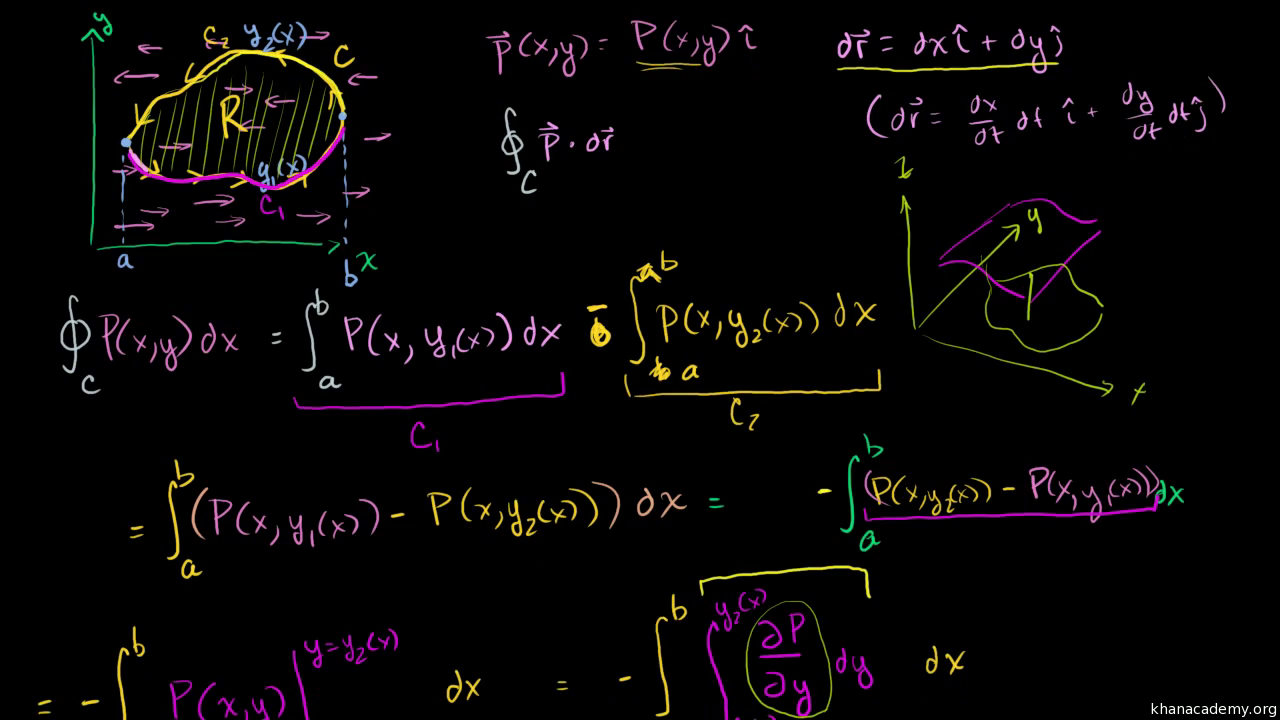 y
C₂ y₂(x)
C
R
y₁(x)
C₁
a b x
P⃗(x,y) = P(x,y) î
∮_C P⃗ · dr⃗
dr⃗ = dx î + dy ĵ
(dr⃗ = dx/dt dt î + dy/dt dt ĵ)
z
y
x
∮_C P(x,y) dx = ∫_a^b P(x, y₁(x)) dx - ∫_a^b P(x, y₂(x)) dx
C₁ C₂
= ∫_a^b (P(x, y₁(x)) - P(x, y₂(x))) dx = - ∫_a^b (P(x, y₂(x)) - P(x, y₁(x))) dx
= - ∫^b P(x,y) |^{y=y₂(x)} dx = - ∫^b ∫^{y₂(x)} ∂P/∂y dy dx
khanacademy.org